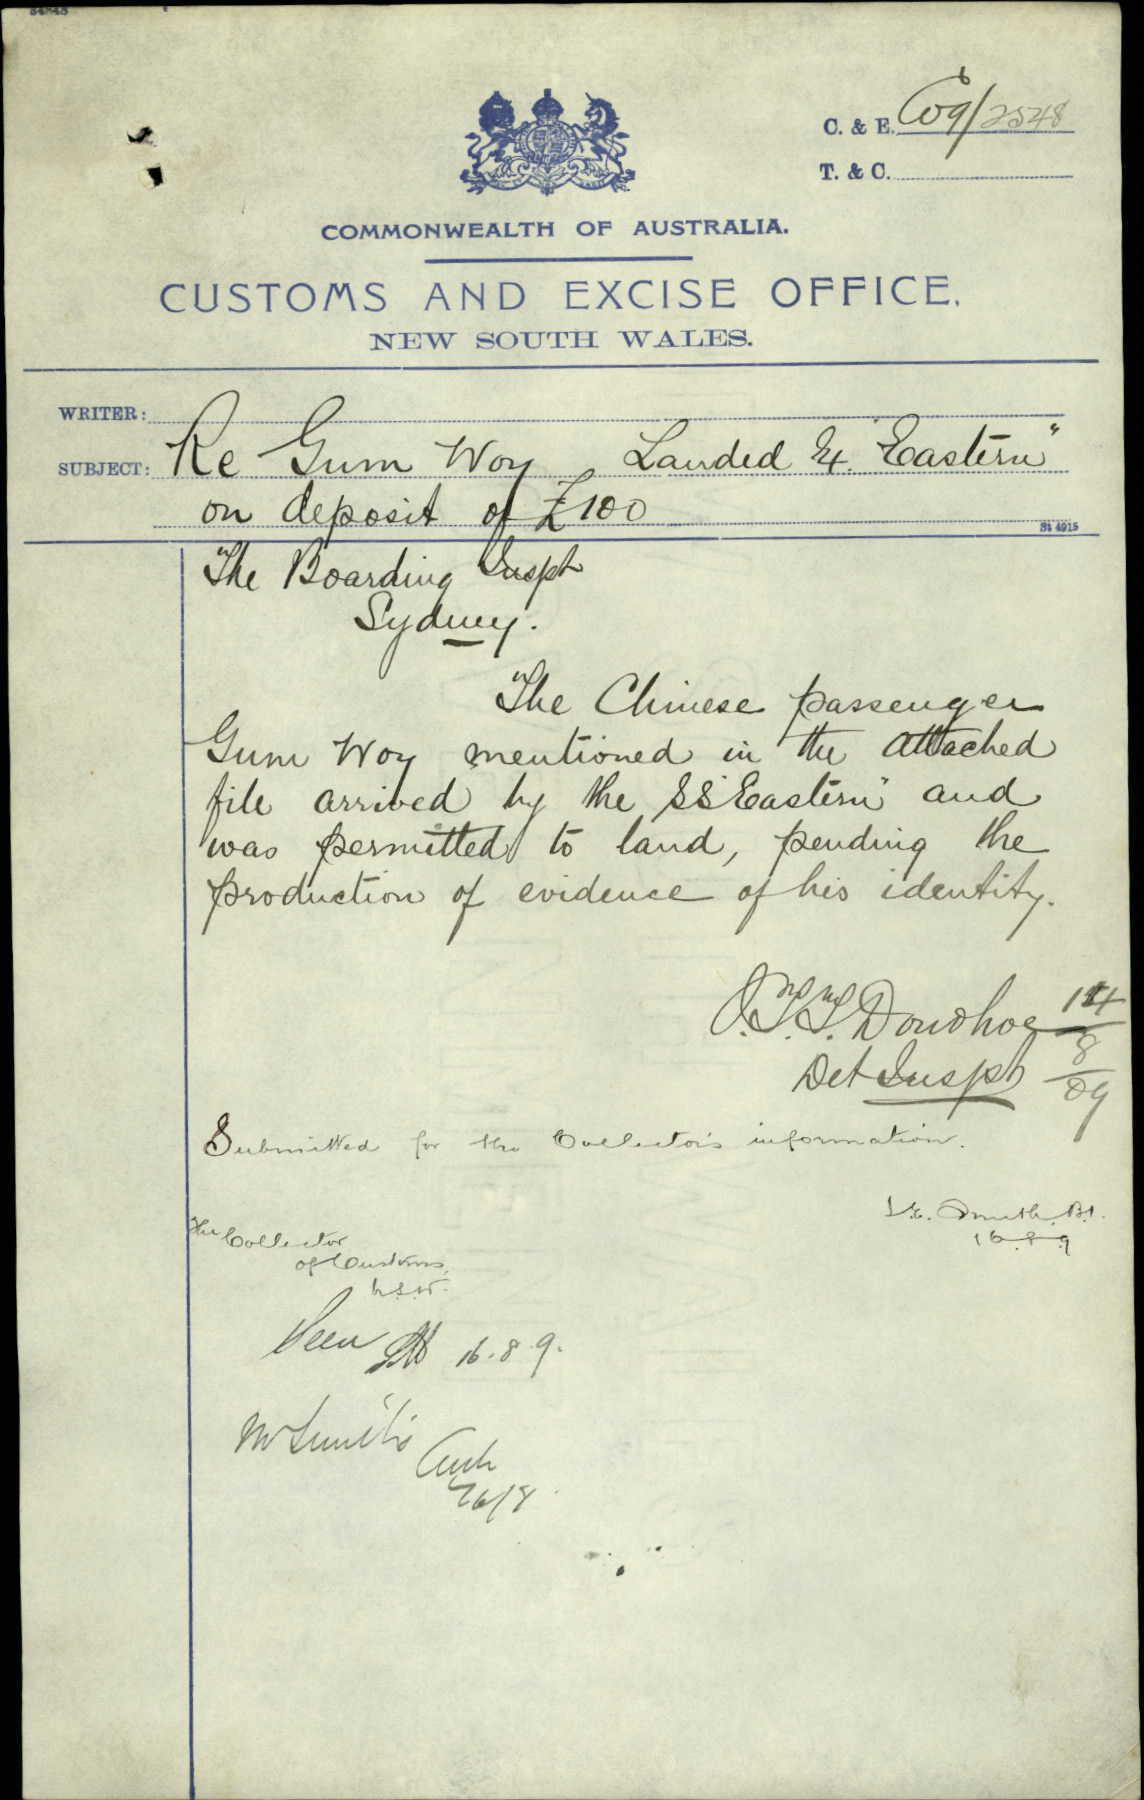 C. & E. C09/2548
T. & C.
COMMONWEALTH OF AUSTRALIA.
CUSTOMS AND EXCISE OFFICE.
NEW SOUTH WALES.
WRITER:
SUBJECT: Re Gum Woy Landed Ex "Eastern"
on deposit of £100
St 4915
The Boarding Inspr
Sydney.
The Chinese passenger
Gum Woy mentioned in the attached
file arrived by the SS "Eastern" and
was permitted to land, pending the
production of evidence of his identity.
J.T.T. Donohoe 14/8/09
Det Inspr
Submitted for the Collector's information.
Smith. B.I.
16.8.9
The Collector
of Customs,
N.S.W.
Seen 16.8.9.
Mr Smith
26/8